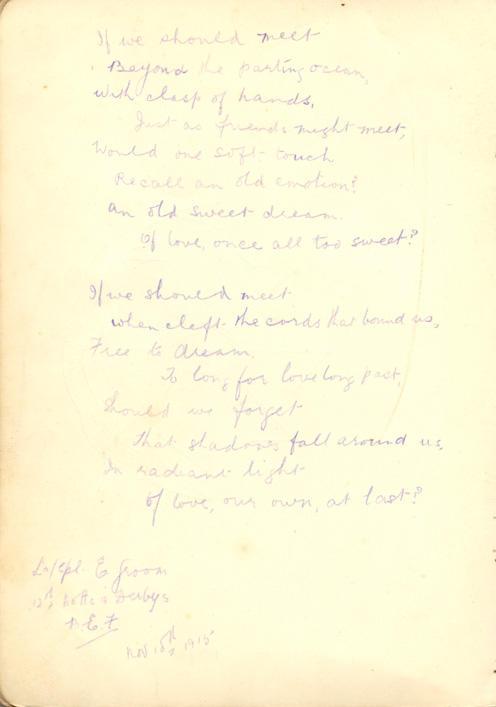 If we should meet
Beyond the parting ocean,
With clasp of hands,
Just as friends might meet,
Would one soft touch
Recall an old emotion?
An old sweet dream.
Of love, once all too sweet?
If we should meet
When cleft the cords that bound us,
Free to dream.
To long for love long past,
Should we forget
That shadows fall around us,
In radiant light
Of love, our own, at last?
L/Cpl. E Groom
12th Notts & Derbys
B.E.F
Nov 1915